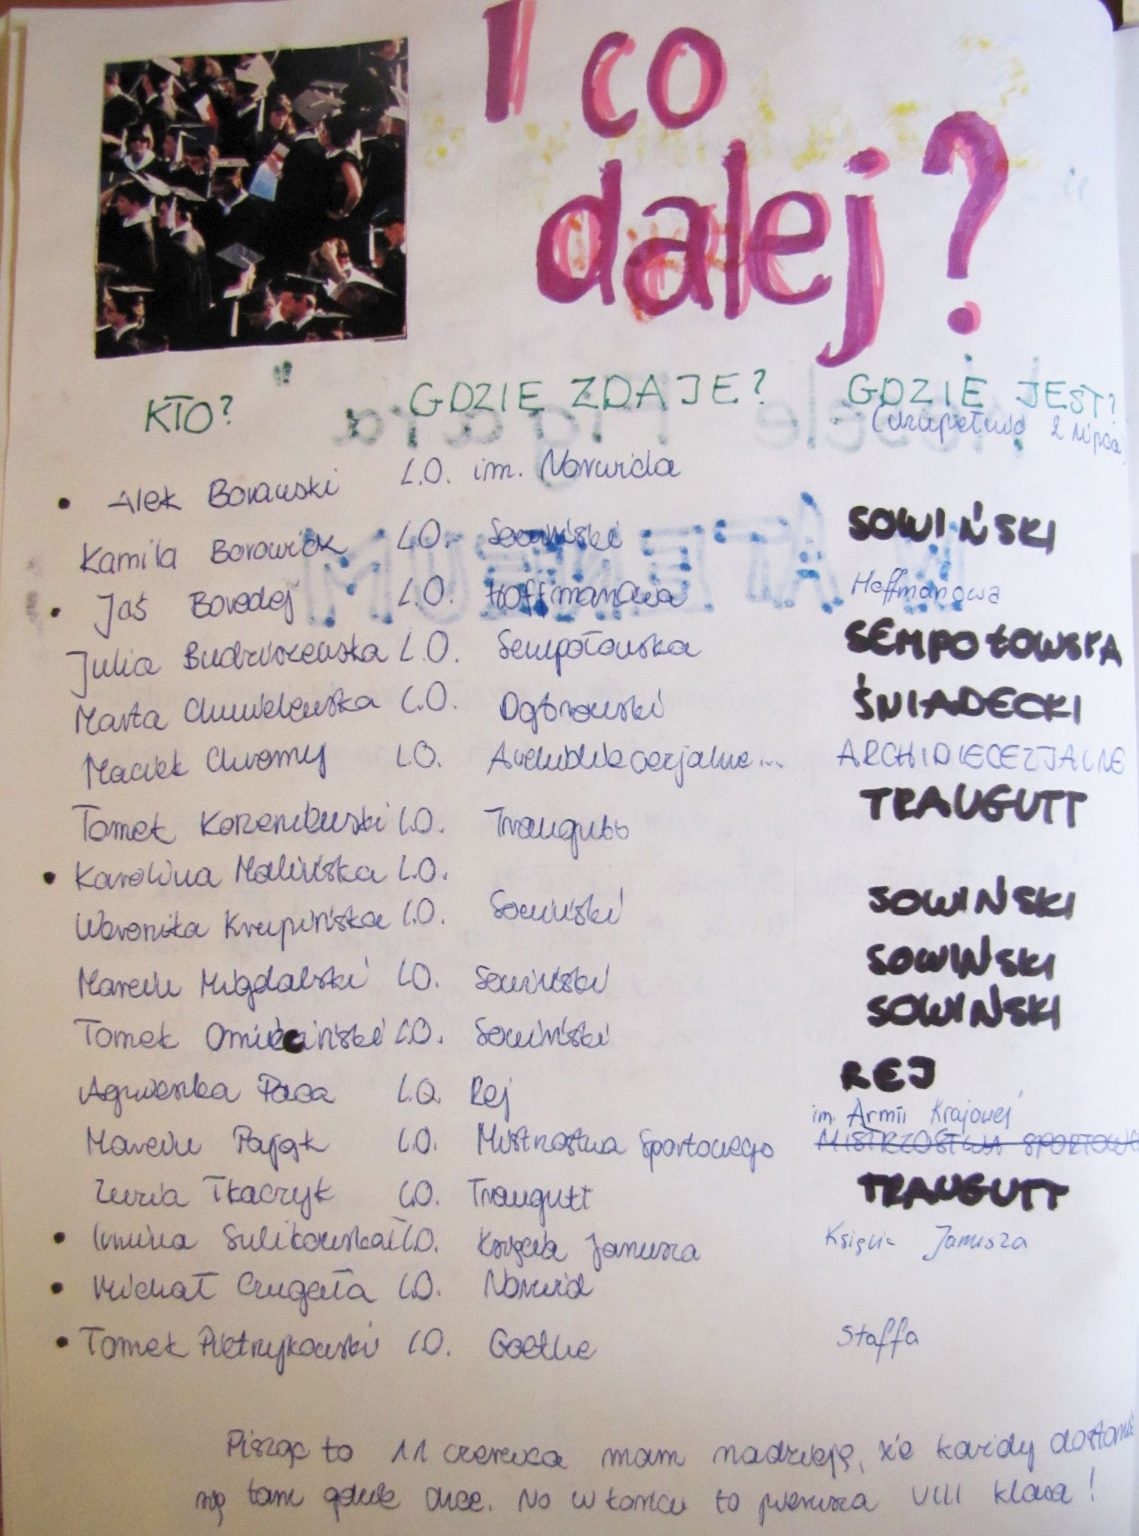 I co
dalej?
KTO? GDZIE ZDAJE? GDZIE JEST?
(uzupełnio 2 lipca)
• Alek Borawski L.O. im. Norwida
Kamila Borowick L.O. Sowiński SOWIŃSKI
• Jaś Boredej L.O. Hoffmanowa Hoffmanowa
Julia Budziszewska L.O. Sempołowska SEMPOŁOWSKA
Marta Chmielewska L.O. Dąbrowski ŚNIADECKI
Maciek Chromy L.O. Archidiecezjalne... ARCHIDIECEZJALNE
Tomek L.O. Traugutt TRAUGUTT
• Karolina Malińska L.O.
Weronika Krupińska L.O. Sowiński SOWIŃSKI
Marcin Migdalski L.O. Sowiński SOWIŃSKI
Tomek Omieciński L.O. Sowiński SOWIŃSKI
Agnieszka Paca L.O. Rej REJ
im. Armii Krajowej
Marcin Pająk L.O. Mistrzostwa Sportowego MISTRZOSTWA SPORTOWE
Zuzia Tkaczyk L.O. Traugutt TRAUGUTT
• Sulikowska L.O. Księcia Janusza Księcia Janusza
• Michał Czugała L.O. Norwid
• Tomek Pietrzykowski L.O. Goethe Staffa
Pisząc to 11 czerwca mam nadzieję, że każdy dostanie
się tam gdzie chce. No w końcu to pierwsza VIII klasa!